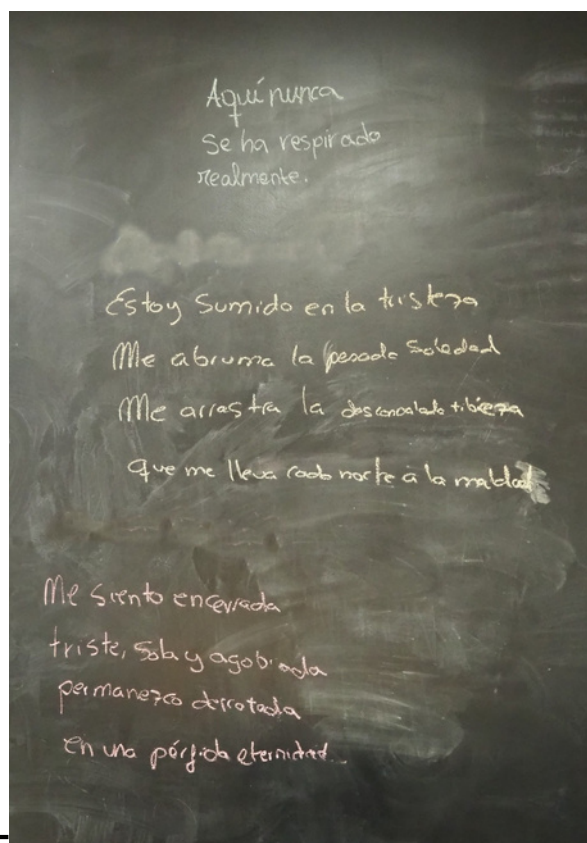 Aquí nunca
se ha respirado
realmente.
Estoy sumido en la tristeza
Me abruma la pesada soledad
Me arrastra la desconsolada tibieza
que me lleva cada noche a la maldad
Me siento encerrada
triste, sola y agobiada
permanezco derrotada
en una pérfida eternidad.